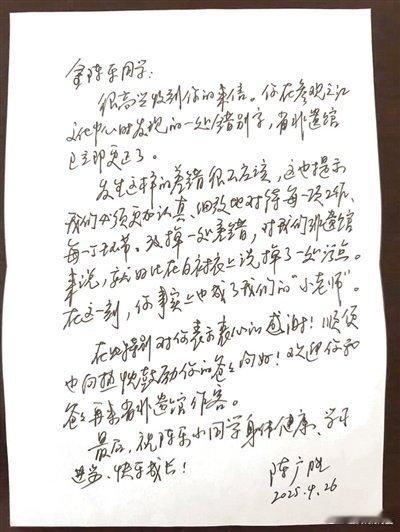 金陈乐同学:
很高兴收到你的来信。你在参观之江
文化中心时发现的一处错别字,省非遗馆
已立即更正了。
发生这样的差错很不应该,这也提示
我们必须更加认真、细致地对待每一项工作、
每一个环节。改掉一处差错,对我们非遗馆
来说,就好比在白衬衣上洗掉了一处污点。
在这一刻,你事实上也成了我们的“小老师”。
在此特别对你表示衷心的感谢!顺便
也向 鼓励你的爸爸问好!欢迎你和
爸爸再来省非遗馆作客。
最后,祝陈乐小同学身体健康、学习
进步、快乐成长!
陈广胜
2025.9.26